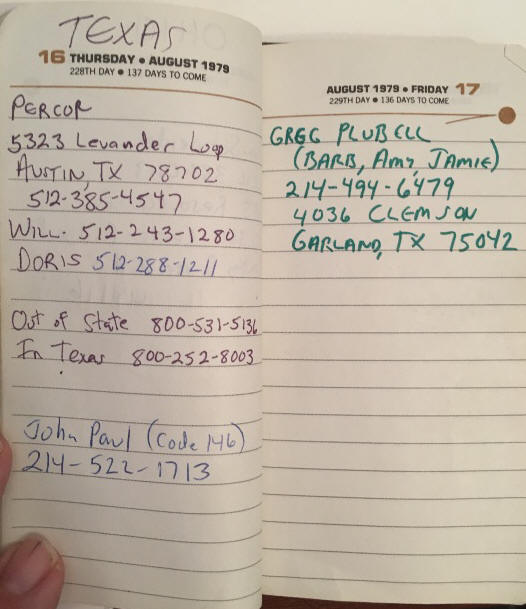 TEXAS
16 THURSDAY • AUGUST 1979
228TH DAY • 137 DAYS TO COME
PERCOR
5323 Levander Loop
AUSTIN, TX 78702
512-385-4547
WILL - 512-243-1280
DORIS 512-288-1211
Out of State 800-531-5136
In Texas 800-252-8003
John Paul (Code 146)
214-522-1713
AUGUST 1979 • FRIDAY 17
229TH DAY • 136 DAYS TO COME
GREG PLUBELL
(BARB, Amy, JAMIE)
214-494-6479
4036 CLEMSON
GARLAND, TX 75042